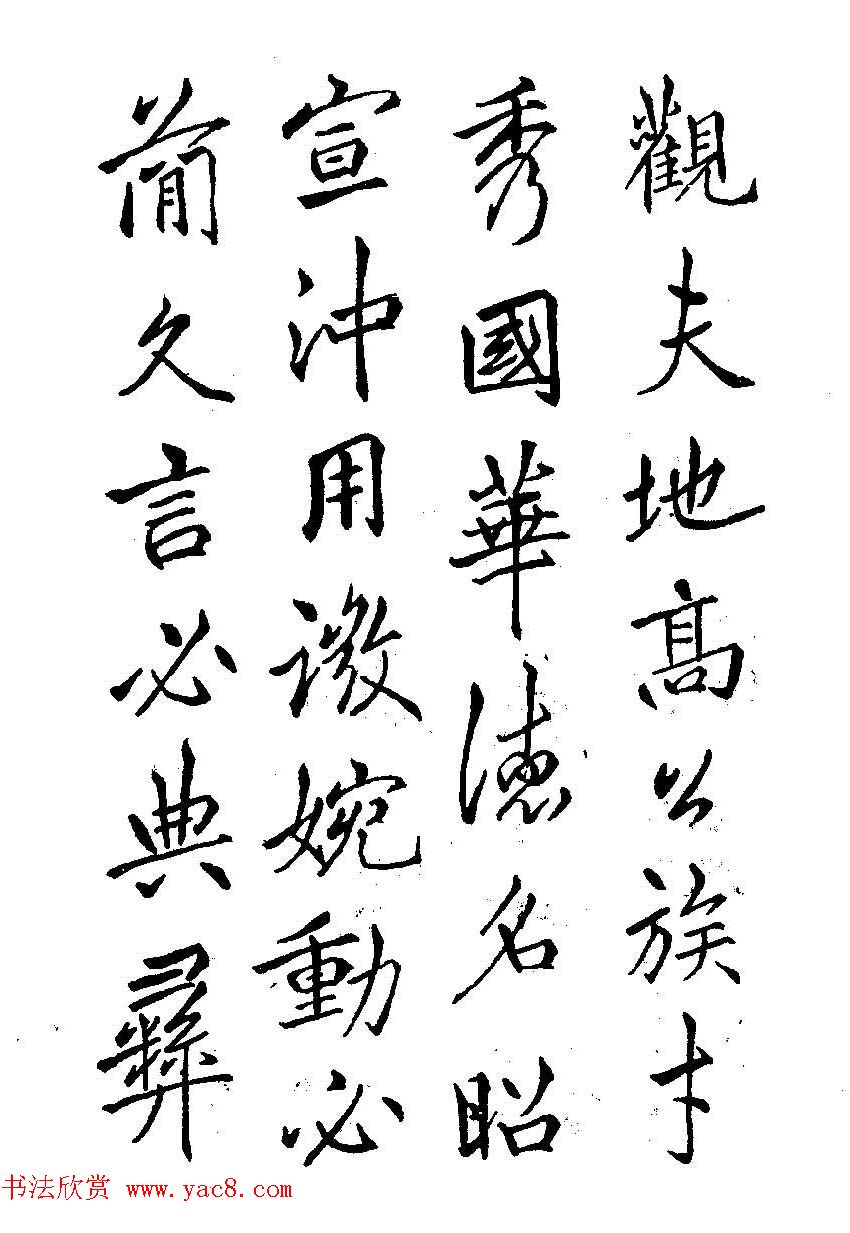 觀夫地高公族才
秀國華德名昭
宣沖用微婉動必
簡久言必典彝
书法欣赏 www.yac8.com